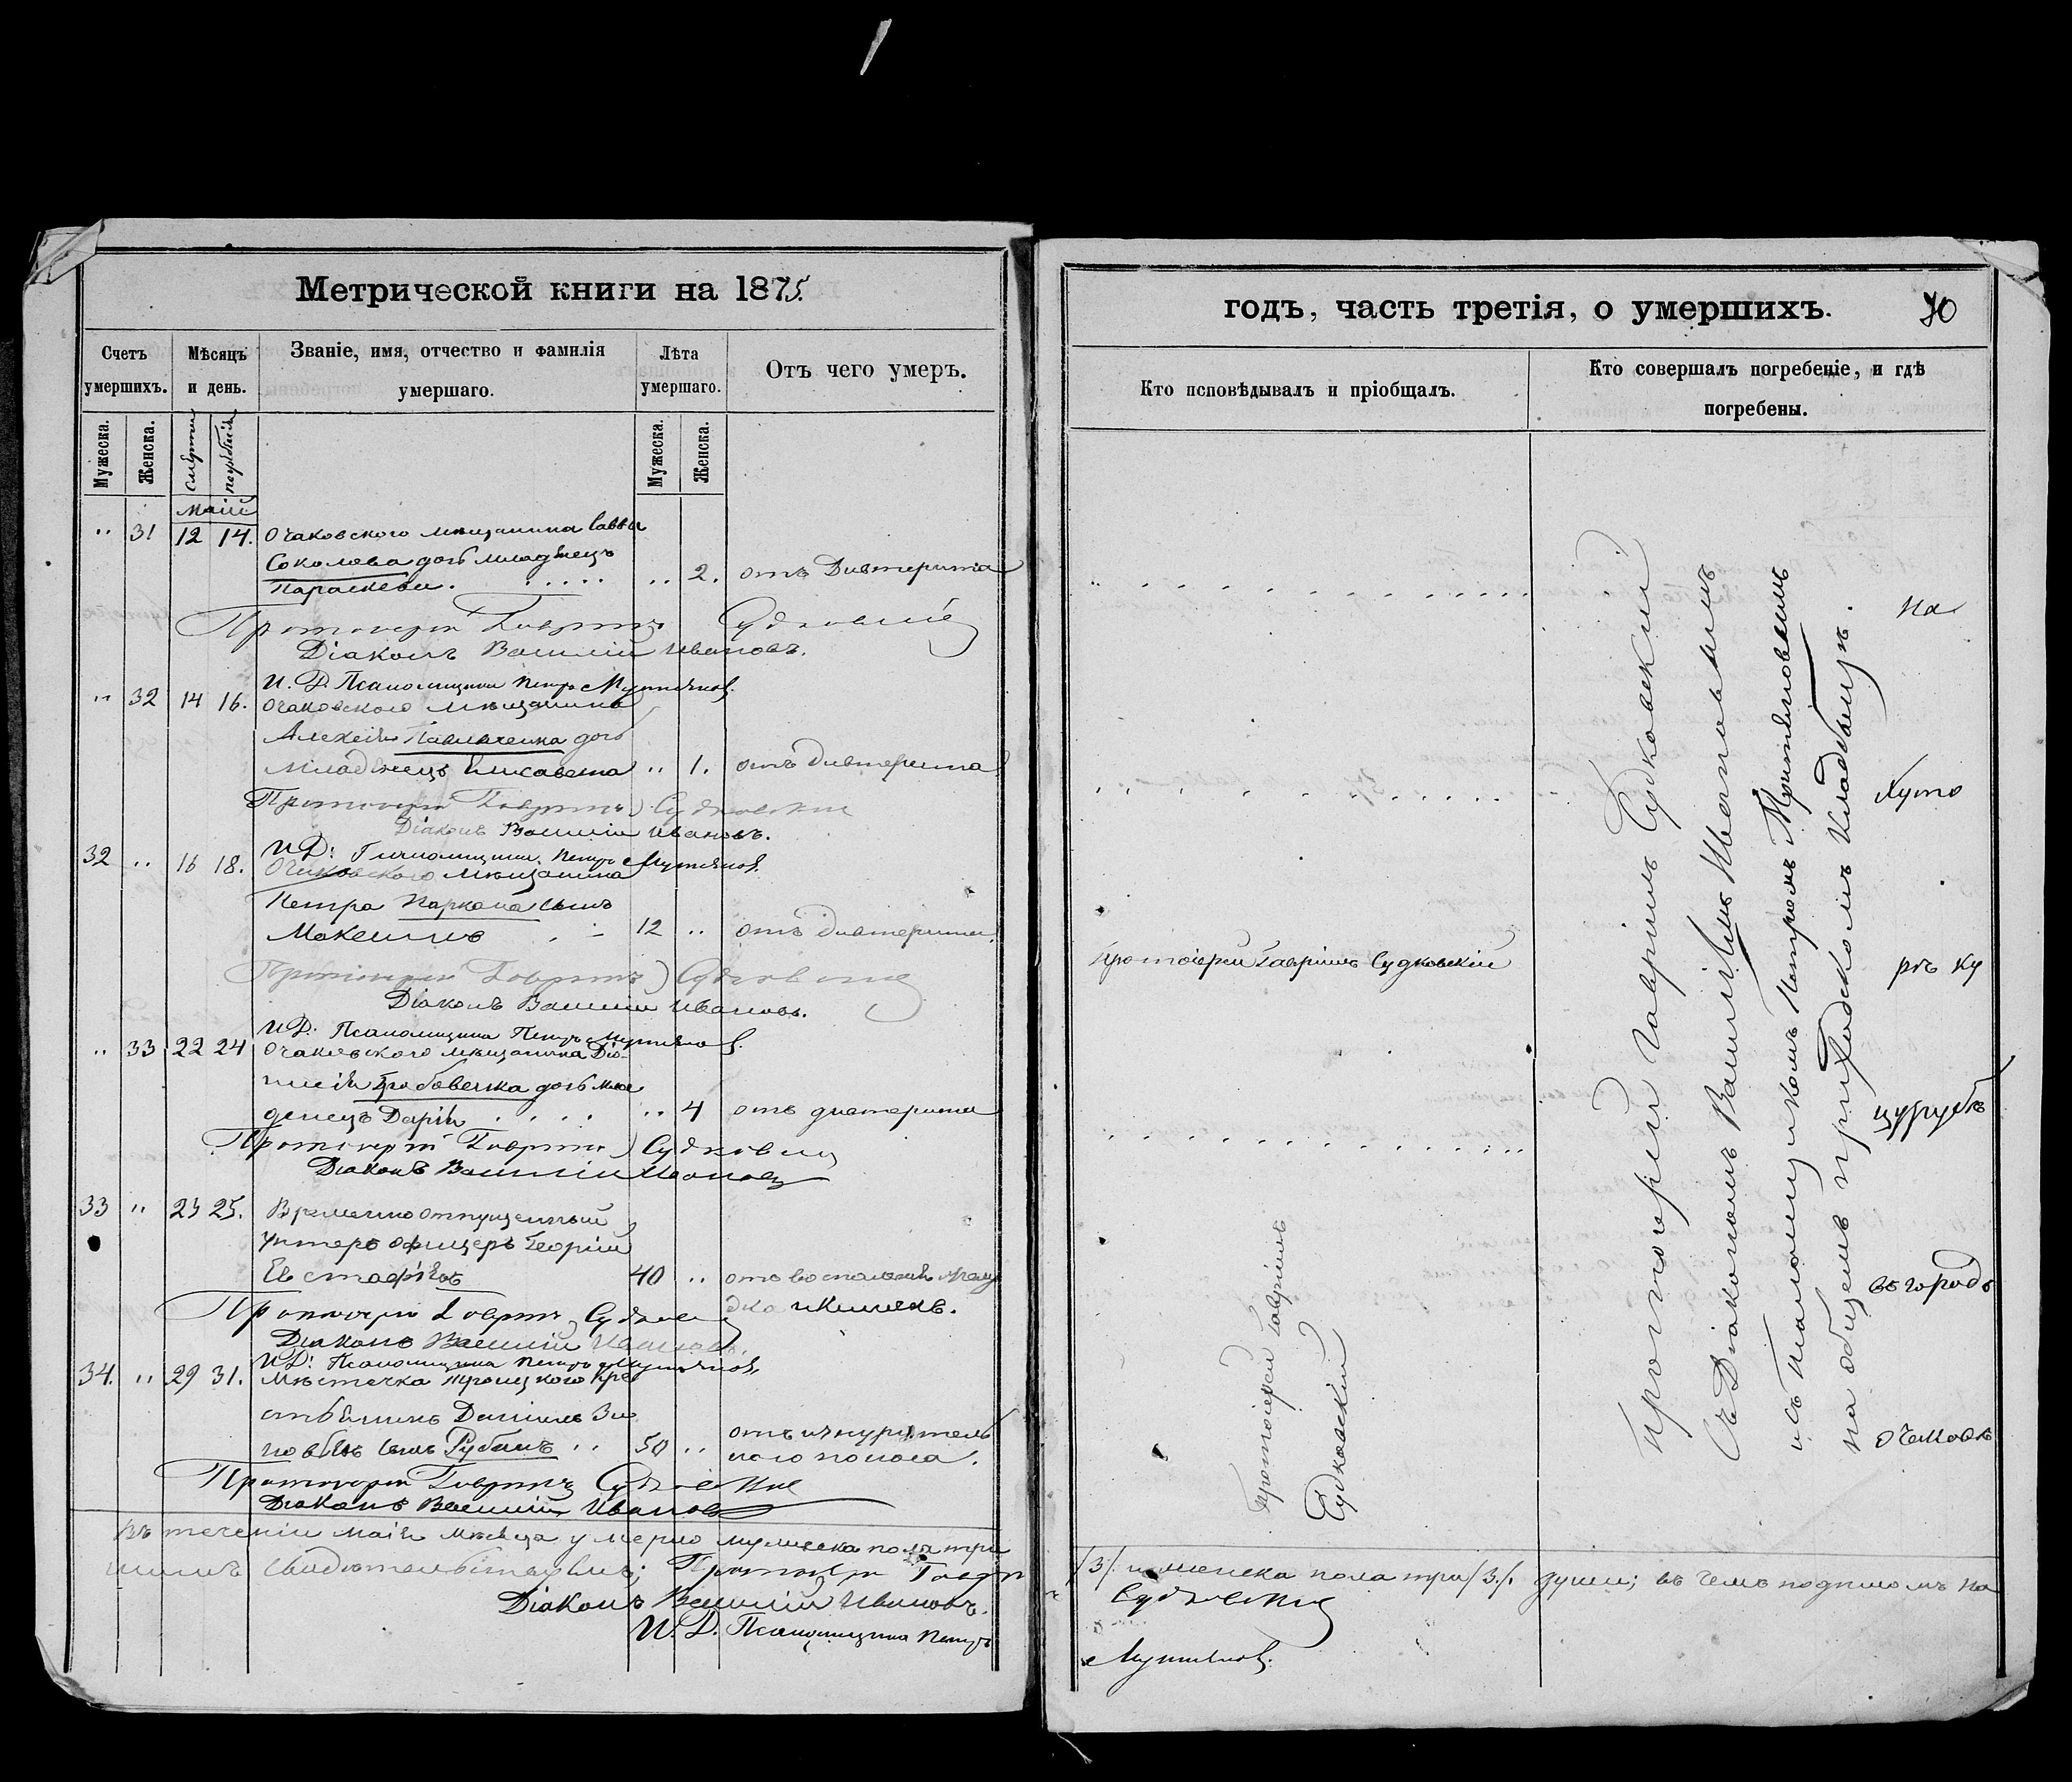 Метрической книги на 1875.
Счетъ умершихъ.
Мѣсяцъ и день.
Званіе, имя, отчество и фамилія умершаго.
Лѣта умершаго.
Отъ чего умеръ.
Мужеска.
Женска.
Смерти
погребенія
Мужеска.
Женска.
Маій
" 31 12 14. Очаковского мѣщанина Саввы
Соколова дочь младенецъ
Параскева. .. 2. отъ Дивтерита
Протоіерей Гавріилъ Судковскій
Діаконъ Василій Ивановъ.
И. Д. Псаломщика Петръ
" 32 14 16. Очаковского мѣщанина
Алексія Павличенка дочь
младенецъ Елисавета " 1. отъ дивтерита
Протоіерей Гавріилъ Судковскій
Діаконъ Василій Ивановъ.
И. Д. Псаломщика Петръ
32 .. 16 18. Очаковского мѣщанина
Петра сынъ
12 .. отъ дивтерита.
Протоіерей Гавріилъ Судковскій
Діаконъ Василій Ивановъ.
И. Д. Псаломщика Петръ
.. 33 22 24 Очаковского мѣщанина Діо-
нисія дочь мла
денецъ Дарія .. 4 отъ дивтерита
Протоіерей Гавріилъ Судковскій
Діаконъ Василій Ивановъ
33 " 23 25. Временно отпущенный
унтеръ офицеръ Георгій
Евстафіевъ 40 .. отъ воспаленія желу
дка и кишекъ.
Протоіерей Гавріилъ Судковскій
Діаконъ Василій Ивановъ.
И. Д. Псаломщика Петръ
34. .. 29 31. Мѣстечка Троицкого кре
стьянинъ Даніилъ Зи
новьевъ сынъ Рубанъ .. 50 .. отъ изнурител
ного поноса.
Протоіерей Гавріилъ Судковскій
Діаконъ Василій Ивановъ
Въ теченіи Маія мѣсяца умерло мужеска пола три
шимъ свидѣтельствуемъ; Протоіерей Гавріилъ
Діаконъ Василій Ивановъ.
И. Д. Псаломщика Петръ
годъ, часть третія, о умершихъ.
70
Кто исповѣдывалъ и пріобщалъ.
Кто совершалъ погребеніе, и гдѣ погребены.
Протоіерей Гавріилъ Судковскій
Протоіерей Гавріилъ
Судковскій
Протоіерей Гавріилъ Судковскій
съ Діакономъ Василіемъ Ивановымъ
и съ Псаломщикомъ Петромъ
на общемъ приходскомъ кладбищѣ.
На
Хуто
рѣ Ку
цурубѣ
въ городѣ
Очаковѣ
/3/. и женска пола три /3./. души; въ чемъ подписомъ на
Судковскій